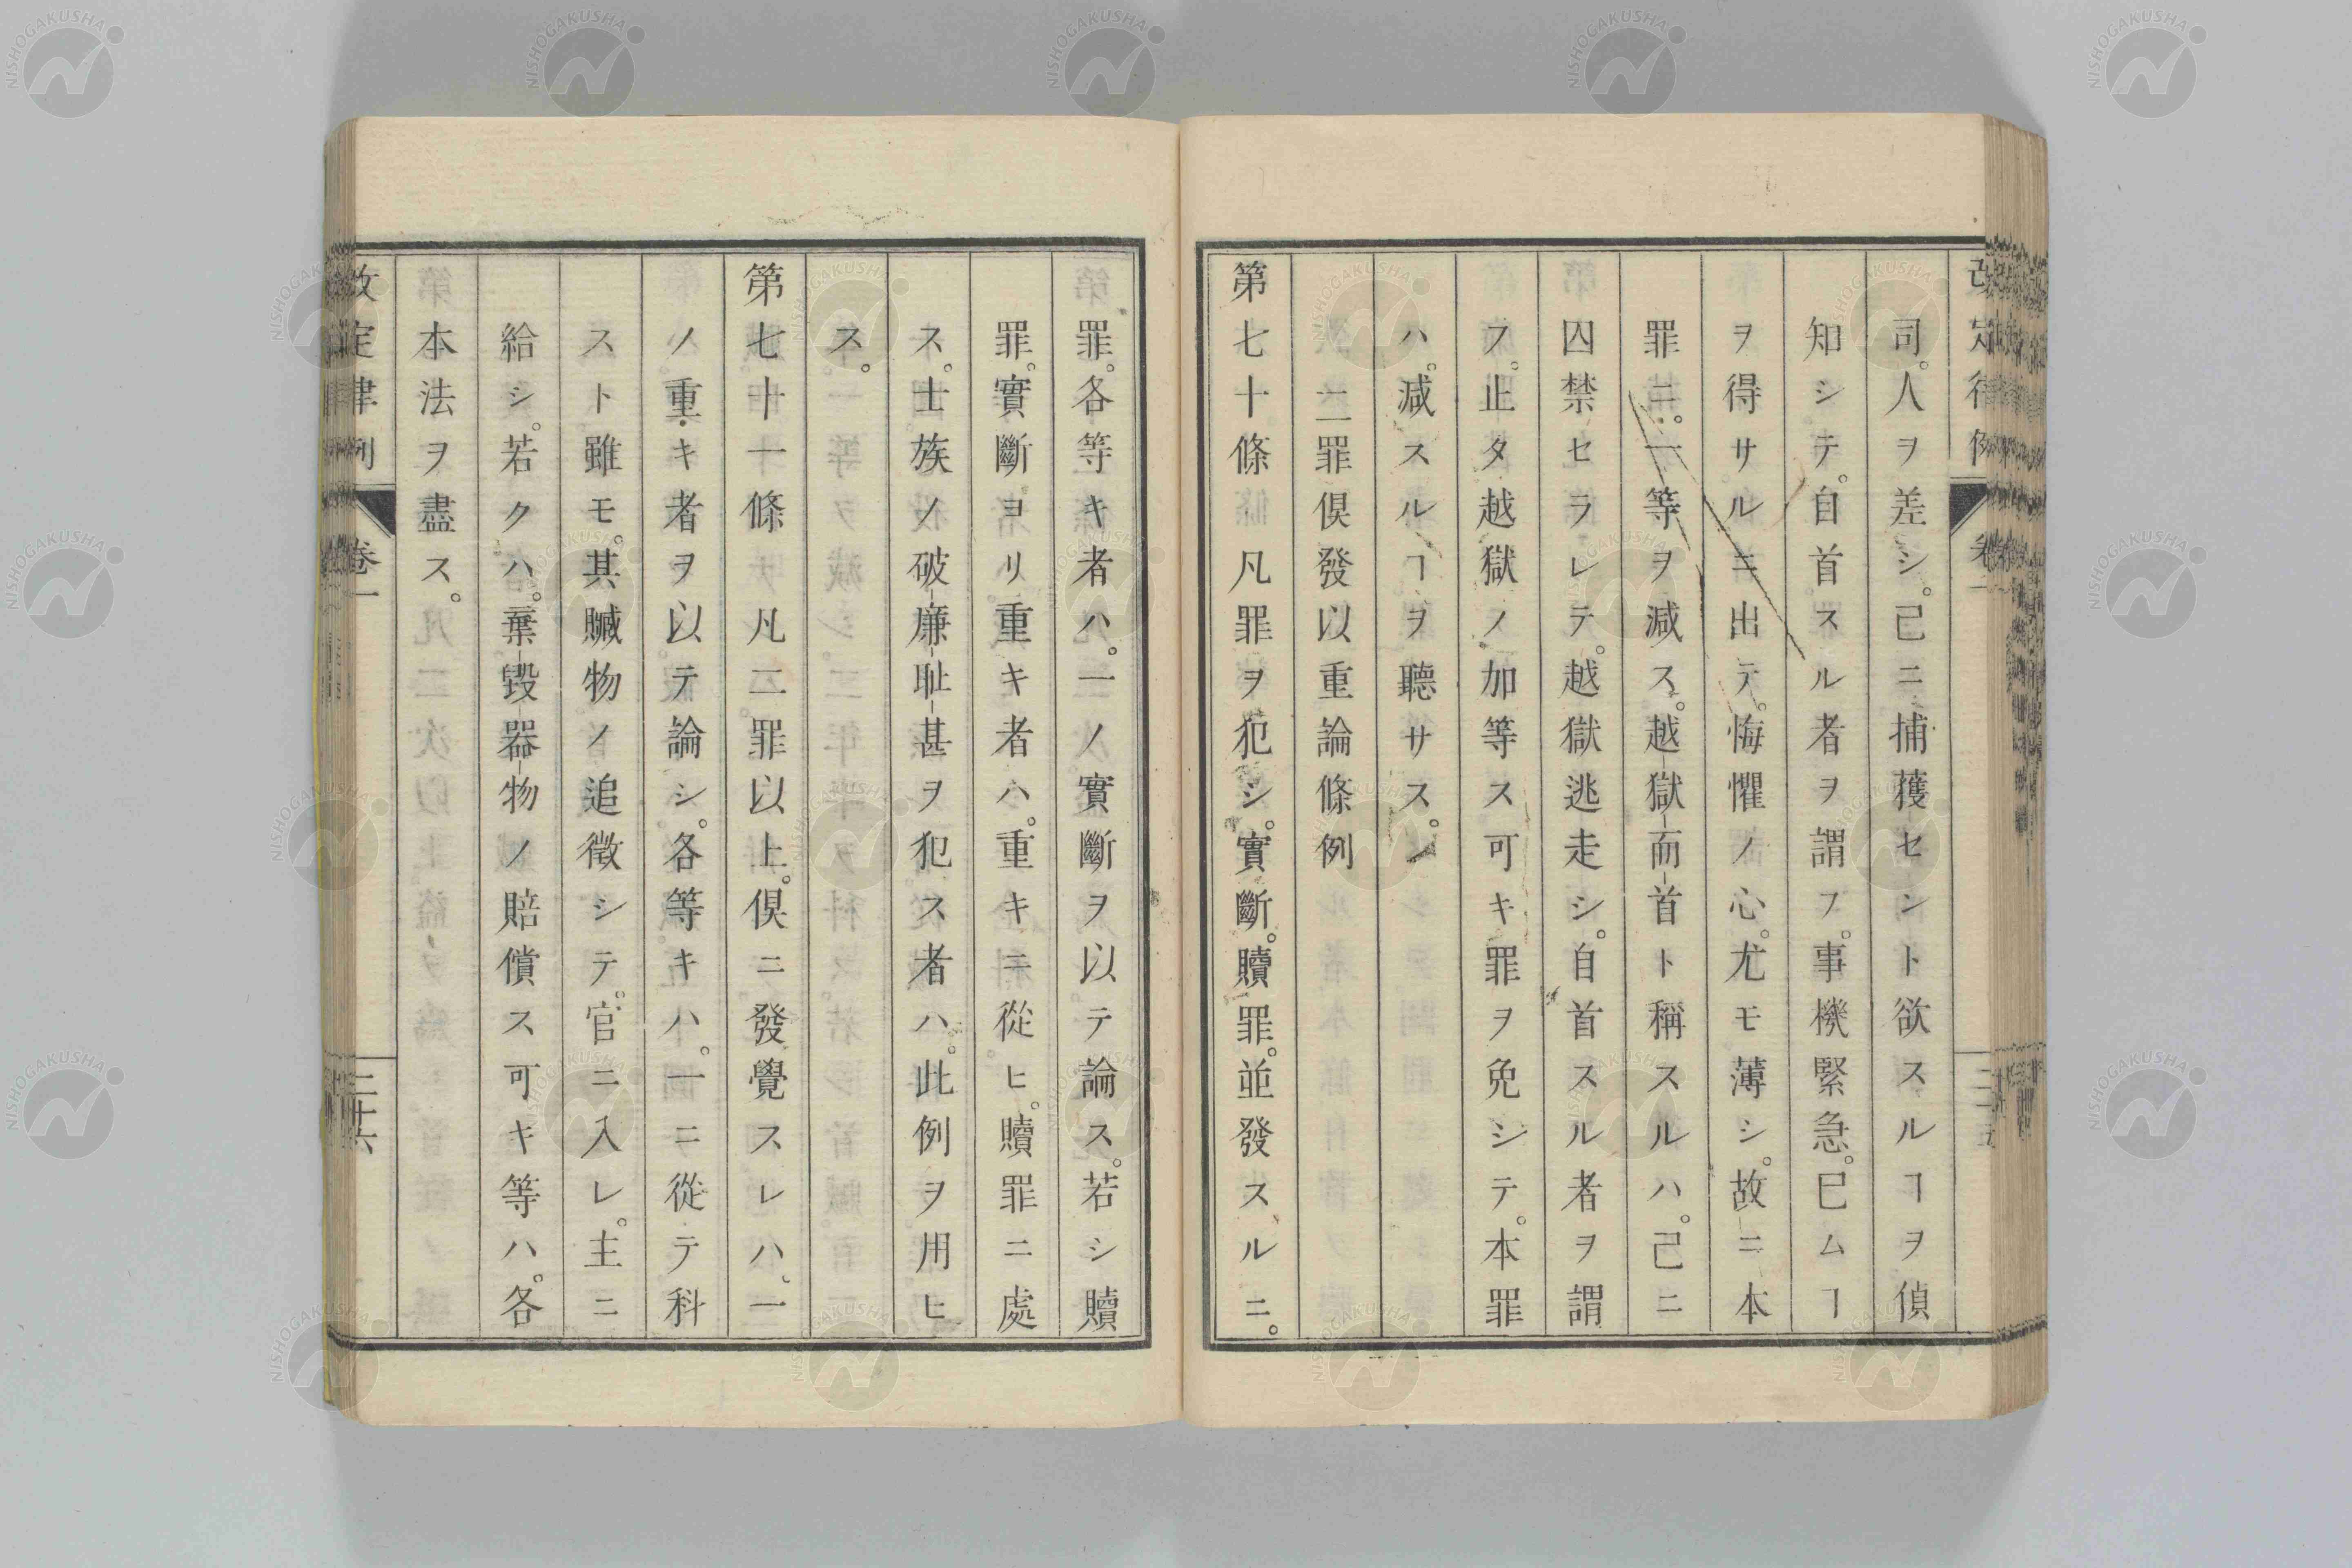 司。人ヲ差シ。己ニ捕獲セント欲スルヿヲ偵
知シテ。自首スル者ヲ謂フ。事機緊急。巳ムヿ
ヲ得サルニ出テ。悔懼ノ心。尤モ薄シ。故ニ本
罪ニ。一等ヲ減ス。越獄而首ト稱スルハ。己ニ
囚禁セラレテ。越獄逃走シ。自首スル者ヲ謂
フ。止タ越獄ノ加等ス可キ罪ヲ免シテ。本罪
ハ。減スルヿヲ聽サス。
二罪俱發以重論條例
第七十條 凡罪ヲ犯シ。實斷。贖罪。並發スルニ。
罪。各等キ者ハ。一ノ實斷ヲ以テ論ス。若シ贖
罪。實斷ヨリ重キ者ハ。重キニ從ヒ。贖罪ニ處
ス。士族ノ破廉耻甚ヲ犯ス者ハ。此例ヲ用ヒ
ス。
第七十一條 凡二罪以上。俱ニ發覺スレハ。一
ノ重キ者ヲ以テ論シ。各等キハ。一ニ從テ科
スト雖モ。其贓物ノ追徵シテ。官ニ入レ。主ニ
給シ。若クハ。棄毀器物ノ賠償ス可キ等ハ。各
本法ヲ盡ス。
改定律例 卷一 三十六
NISHOGAKUSHA